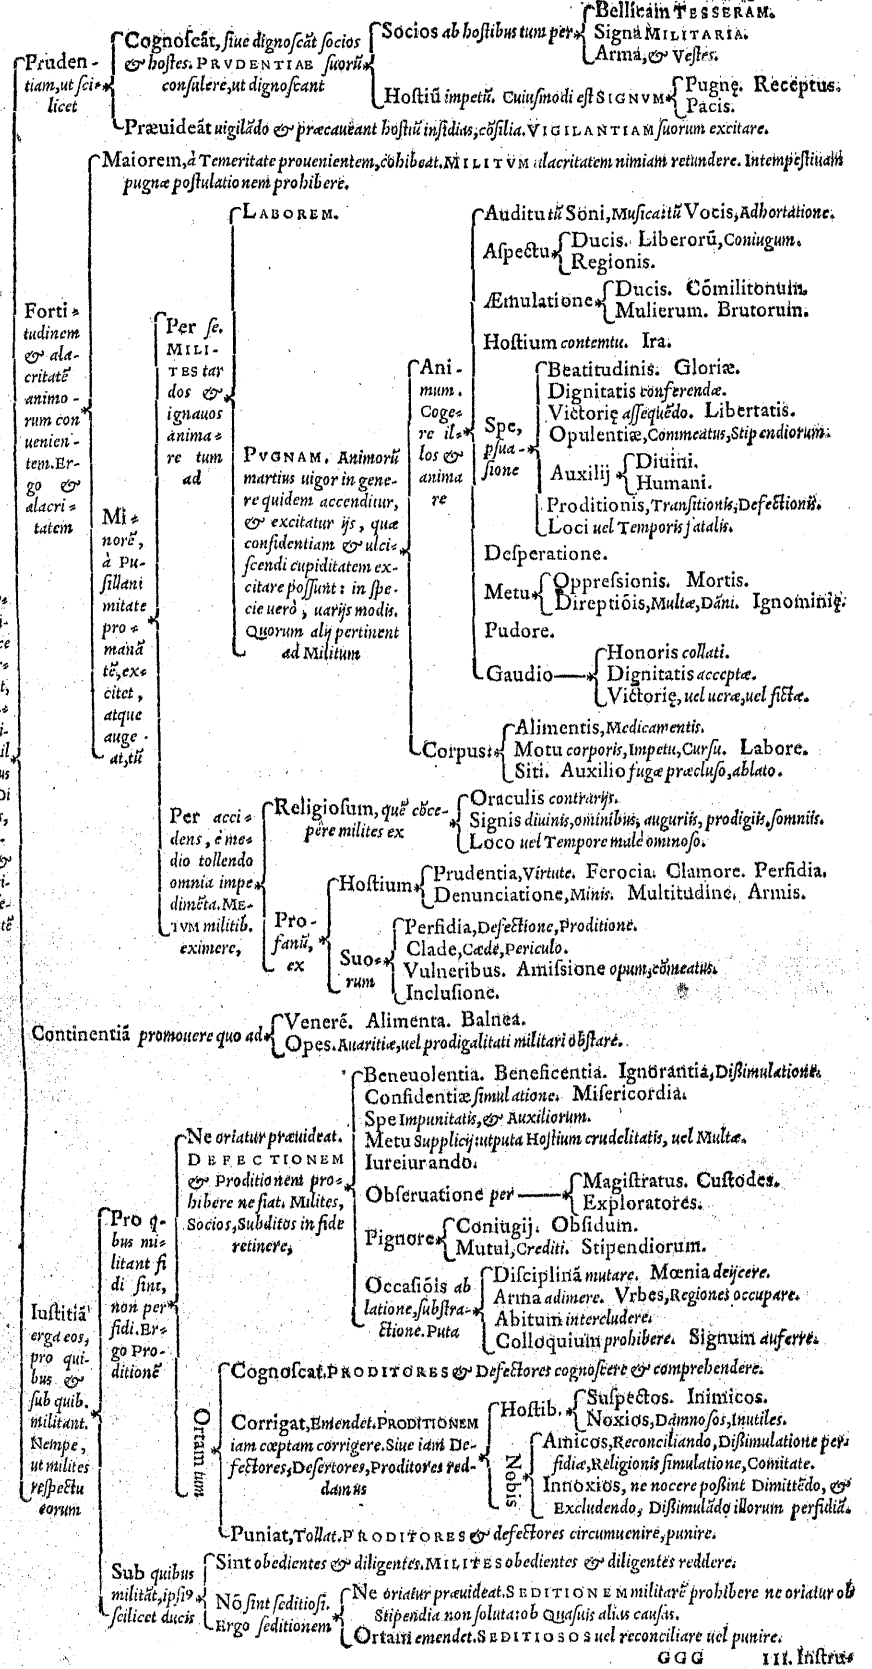 Bellicam TESSERAM.
Signa MILITARIA.
Arma, & Vestes.
Socios ab hostibus tum per
Cognoſcāt, ſiue dignoſcāt ſocios
& hoſtes. PRVDENTIAE ſuorū
conſulere, ut dignoſcant
Pruden-
tiam, ut ſci-
licet
Hoſtiū impetū. Cuiuſmodi eſt SIGNVM
Pugnę. Receptus.
Pacis.
Præuideāt uigilādo & præcaueant hoſtiū inſidias, cōſilia. VIGILANTIAM ſuorum excitare.
Maiorem, à Temeritate prouenientem, cohibeat. MILITVM alacritatem nimiam retundere. Intempeſtiuam
pugnæ poſtulationem prohibere.
Forti-
tudinem
& ala-
critatē
animo-
rum con
uenien-
tem. Er-
go &
alacri-
tatem
Mi-
norē,
à Pu-
ſillani
mitate
pro-
manā
tē, ex-
citet,
atque
auge-
at, tū
Per ſe.
MILI-
TES tar
dos &
ignauos
anima-
re tum
ad
LABOREM.
PVGNAM. Animorū
martius uigor in gene-
re quidem accenditur,
& excitatur ijs, quæ
confidentiam & ulci-
ſcendi cupiditatem ex-
citare poſſunt: in ſpe-
cie uerò, uarijs modis.
Quorum alij pertinent
ad Militum
Ani-
mum.
Coge-
re il-
los &
anima
re
Auditu tū Soni, Muſicæ tū Vocis, Adhortatione.
Aſpectu
Ducis. Liberorū, Coniugum.
Regionis.
Æmulatione
Ducis. Cōmilitonum.
Mulierum. Brutorum.
Hoſtium contemtu. Ira.
Spe,
pſua-
ſione
Beatitudinis. Gloriæ.
Dignitatis conferendæ.
Victorię aſſequēdo. Libertatis.
Opulentiæ, Commeatus, Stipendiorum.
Auxilij
Diuini.
Humani.
Proditionis, Tranſitionis, Defectionis.
Loci uel Temporis fatalis.
Deſperatione.
Metu
Oppreſſionis. Mortis.
Direptiōis, Multæ, Dāni. Ignominię.
Pudore.
Gaudio
Honoris collati.
Dignitatis acceptæ.
Victorię, uel ueræ, uel fictæ.
Corpus
Alimentis, Medicamentis.
Motu corporis, Impetu, Curſu. Labore.
Siti. Auxilio fugæ præcluſo, ablato.
Per acci-
dens, è me-
dio tollendo
omnia impe
dimēta. ME-
TVM militib.
eximere,
Religioſum, quē cōce-
père milites ex
Oraculis contrarijs.
Signis diuinis, ominibus, auguriis, prodigiis, ſomniis.
Loco uel Tempore malè ominoſo.
Pro-
fanū,
ex
Hoſtium
Prudentia, Virtute. Ferocia. Clamore. Perfidia.
Denunciatione, Minis. Multitudine. Armis.
Suo-
rum
Perfidia, Defectione, Proditione.
Clade, Cæde, Periculo.
Vulneribus. Amiſſione opum, cōmeatus.
Incluſione.
Continentiā promouere quo ad
Venerē. Alimenta. Balnea.
Opes. Auaritiæ, uel prodigalitati militari obſtare.
Iuſtitiā
erga eos,
pro qui-
bus &
ſub quib.
militant.
Nempe,
ut milites
reſpectu
eorum
Pro q-
bus mi-
litant fi
di ſint,
non per
fidi. Er-
go Pro-
ditionē
Ne oriatur præuideat.
DEFECTIONEM
& Proditionem pro-
hibere ne fiat. Milites,
Socios, Subditos in fide
retinere,
Beneuolentia. Beneficentia. Ignorantia, Diſſimulatione.
Confidentiæ ſimulatione. Miſericordia.
Spe Impunitatis, & Auxiliorum.
Metu Supplicij: utputa Hoſtium crudelitatis, uel Multæ.
Iureiurando.
Obſeruatione per
Magiſtratus. Cuſtodes.
Exploratores.
Pignore
Coniugij. Obſidum.
Mutui, Crediti. Stipendiorum.
Occaſiōis ab
latione, ſubſtra-
ctione. Puta
Diſciplinā mutare. Mœnia deijcere.
Arma adimere. Vrbes, Regiones occupare.
Abitum intercludere.
Colloquium prohibere. Signum auferre.
Ortam tum
Cognoſcat, PRODITORES & Defectores cognoſcere & comprehendere.
Corrigat, Emendet. PRODITIONEM
iam cœptam corrigere. Siue iam De-
fectores, Deſertores, Proditores red-
damus
Hoſtib.
Suſpectos. Inimicos.
Noxios, Damnoſos, Inutiles.
Nobis
Amicos, Reconciliando, Diſſimulatione per-
fidiæ, Religionis ſimulatione, Comitate.
Innoxios, ne nocere poſſint Dimittēdo, &
Excludendo, Diſſimulādo illorum perfidiā.
Puniat, Tollat. PRODITORES & defectores circumuenire, punire.
Sub quibus
militāt, ipſi⁹
ſcilicet ducis
Sint obedientes & diligentes. MILITES obedientes & diligentes reddere.
Nō ſint ſeditioſi.
Ergo ſeditionem
Ne oriatur præuideat. SEDITIONEM militarē prohibere ne oriatur ob
Stipendia non ſoluta: ob Quaſuis alias cauſas.
Ortam emendet. SEDITIOSOS uel reconciliare uel punire.
GGG III. Inſtru-